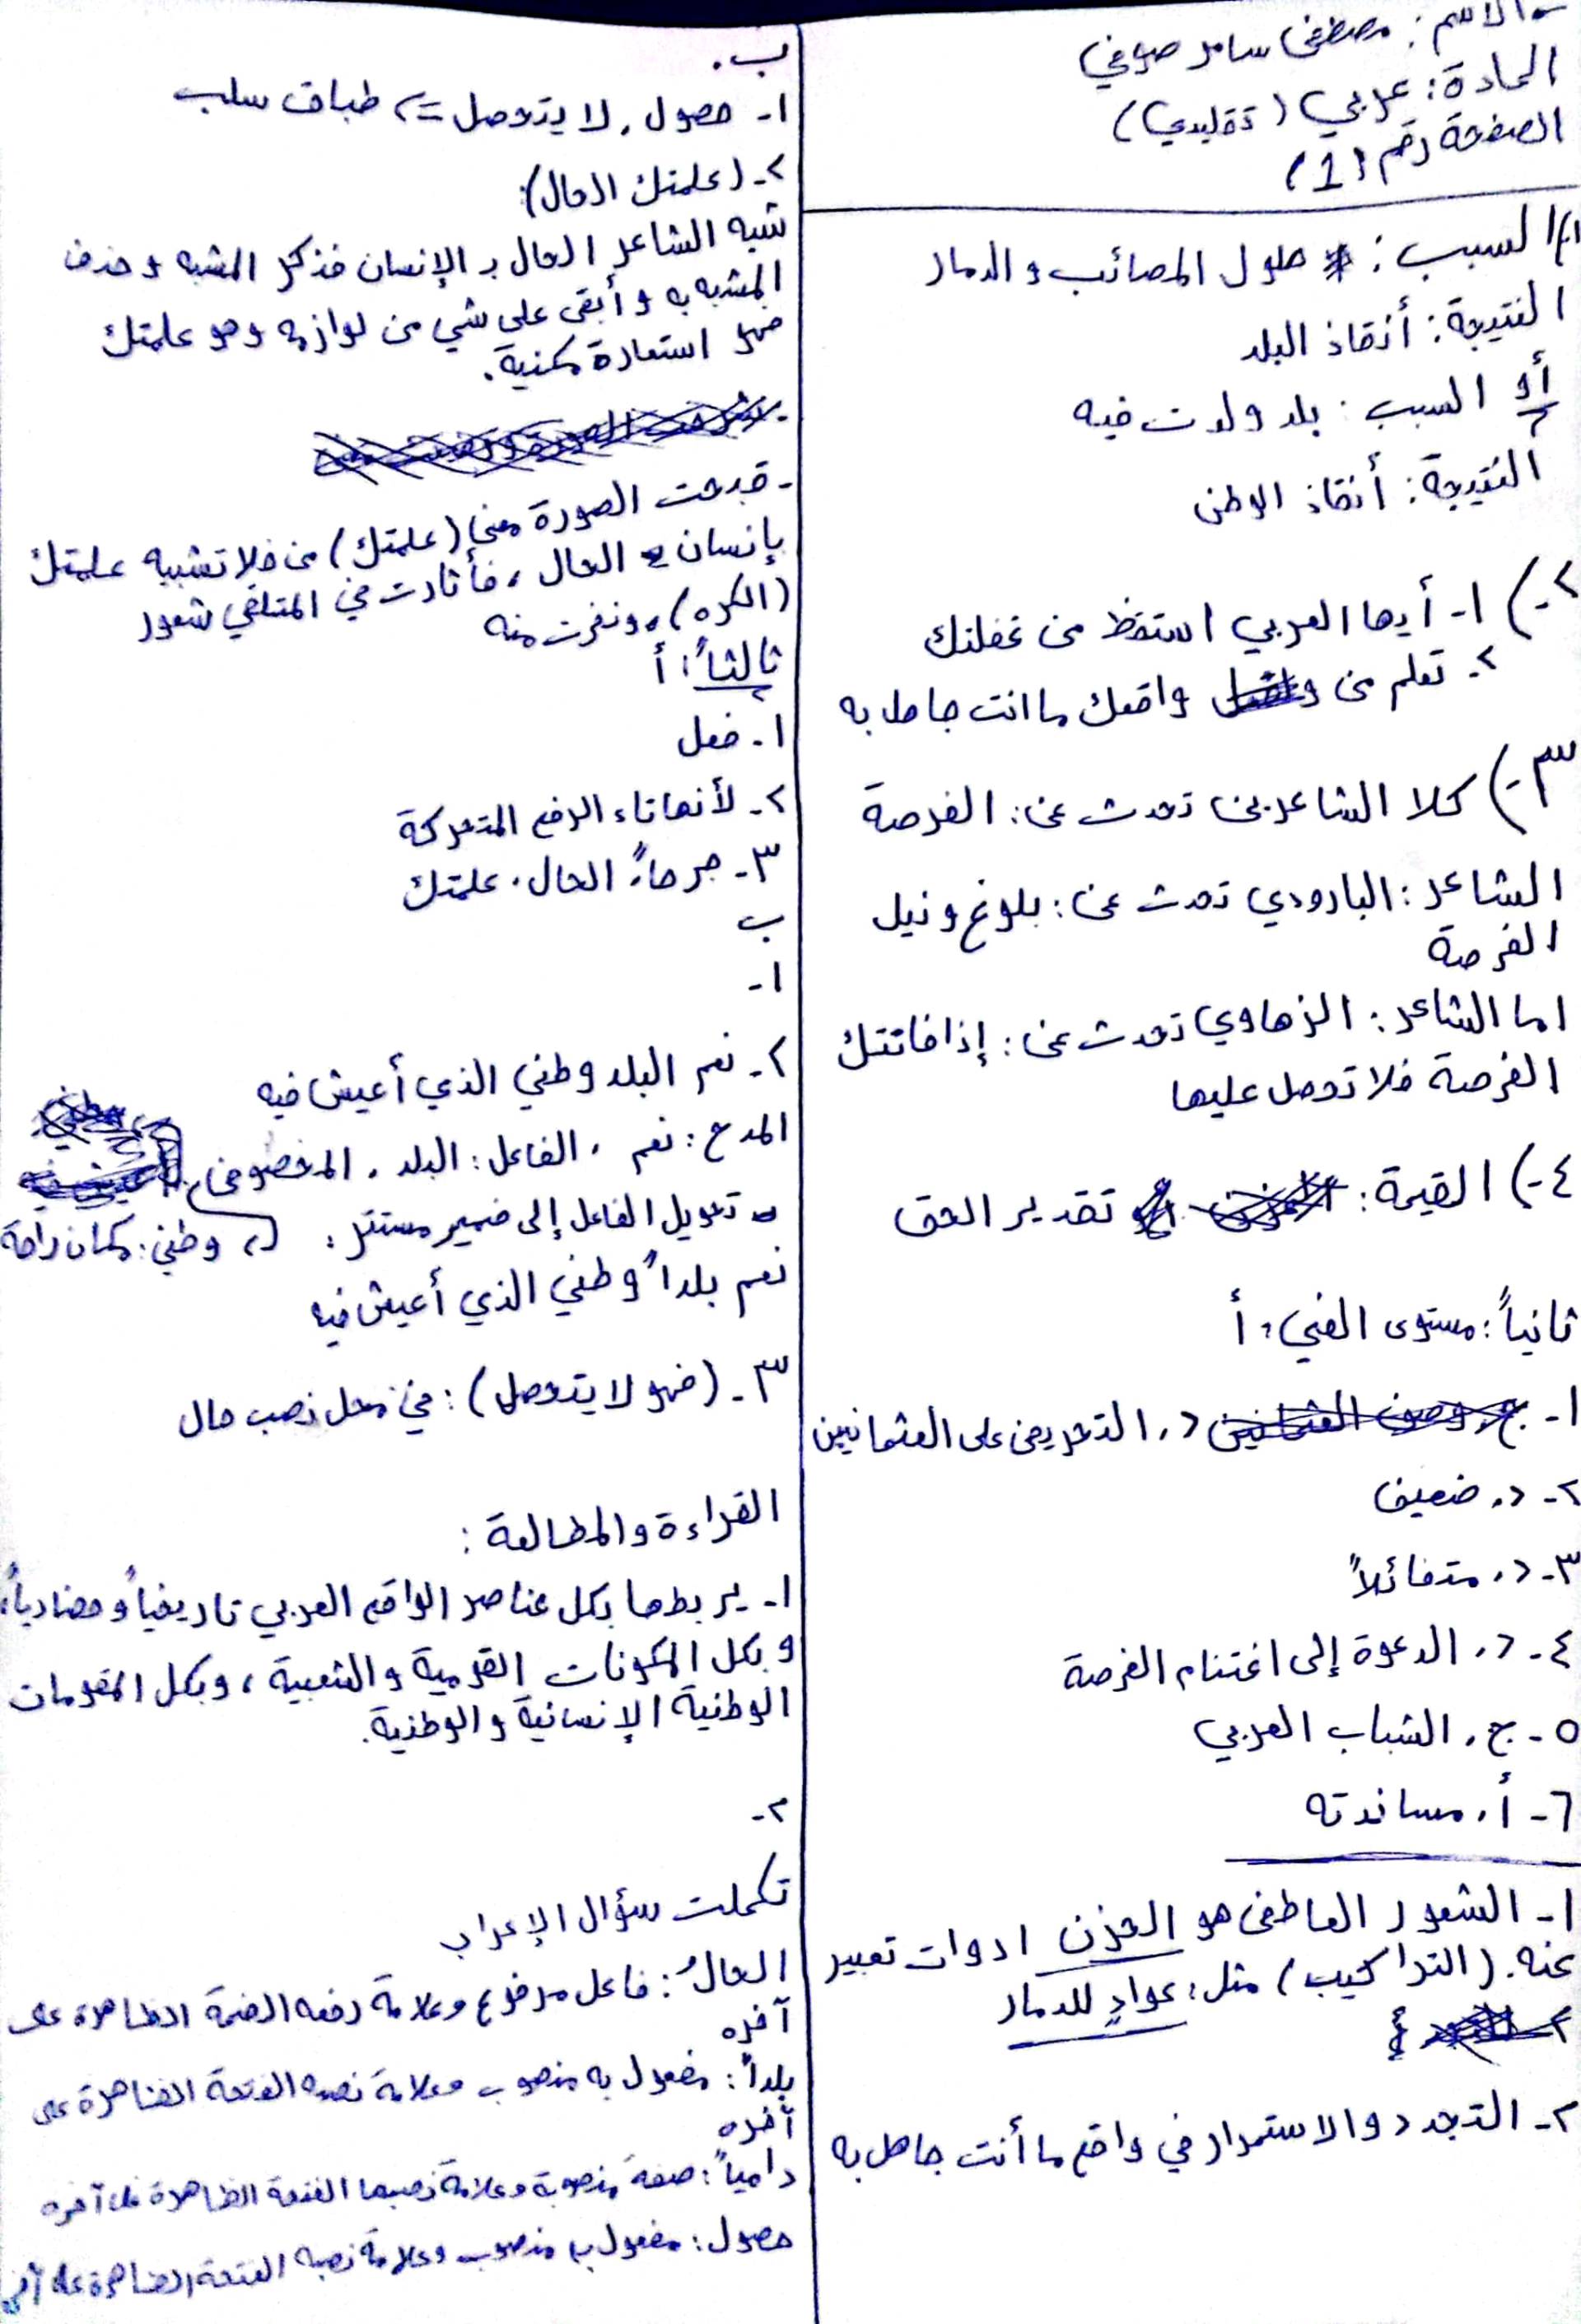 الاسم: مصطفى سامر صوفي
المادة: عربي (تقليدي)
الصفحة رقم (1)
١-) السبب: حلول المصائب و الدمار
النتيجة: أنقاذ البلد
أو السبب: بلد ولدت فيه
النتيجة: أنقاذ الوطن
٢-) ١- أيها العربي استقظ من غفلتك
٢- تعلم من واقعك ما انت جاهل به
٣-) كلا الشاعرين تحدث عن: الفرصة
الشاعر: البارودي تحدث عن: بلوغ و نيل
الفرصة
اما الشاعر: الزهاوي تحدث عن: إذا فاتتك
الفرصة فلا تحصل عليها
٤-) القيمة: تقدير الحق
ثانياً: مستوى الفني: أ
١- د. التحريض على العثمانيين
٢- د. ضعيف
٣- د. متفائلاً
٤- د. الدعوة إلى اغتنام الفرصة
٥- ج. الشباب العربي
٦- أ. مساندته
١- الشعور العاطفي هو الحزن ادوات تعبير
عنه. (التراكيب) مثل: عوادٍ للدمار
٢- التجدد والاستمرار في واقع ما أنت جاهل به
ب.
١- حصول، لا يتحصل => طباق سلب
٢- (علمتك الحال):
شبه الشاعر الحال بـ الإنسان فذكر المشبه و حذف
المشبه به و أبقى على شي من لوازمه وهو علمتك
فهو استعارة مكنية.
- قبحت الصورة معنى (علمتك) من خلا تشبيه علمتك
بإنسان الحال، فأثارت في المتلقي شعور
(الكره)، ونفرت منه
ثالثاً: أ
١- فعل
٢- لأنها تاء الرفع المتحركة
٣- جرحاً، الحال، علمتك
ب
١-
٢- نعم البلد وطني الذي أعيش فيه
المدح: نعم، الفاعل: البلد، المخصوص
وطني: كمان راحة
- تحويل الفاعل إلى ضمير مستتر:
نعم بلداً وطني الذي أعيش فيه
٣- (فهو لا يتحصل): في محل نصب حال
القراءة والمطالعة:
١- يربطها بكل عناصر الواقع العربي تاريخياً و حضارياً،
و بكل المكونات القومية و الشعبية، وبكل المقومات
الوطنية الإنسانية و الوطنية.
٢-
تكملت سؤال الإعراب
الحالُ: فاعل مرفوع وعلامة رفعه الضمة الظاهرة على
آخره
بلداً: مفعول به منصوب وعلامة نصبه الفتحة الظاهرة على
آخره
دامياً: صفة منصوبة وعلامة نصبها الفتحة الظاهرة على آخره
حصول: مفعول به منصوب وعلامة نصبه الفتحة الظاهرة على آخره